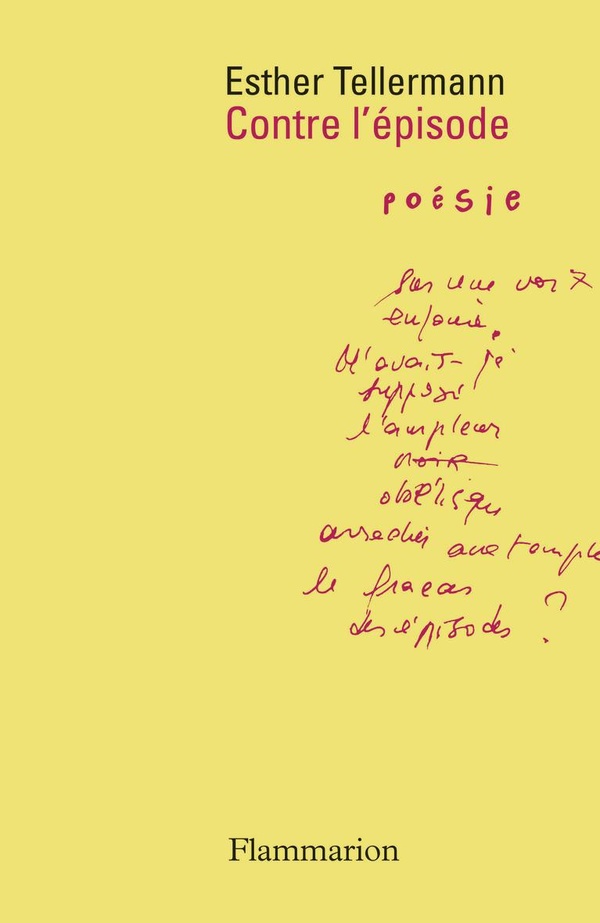 Esther Tellermann
Contre l'épisode
poésie
Sur une voix
enfouie.
N'avait-je
supposé
l'ampleur
noir
oblique
arracher aux temples
le fracas
des épisodes ?
Flammarion